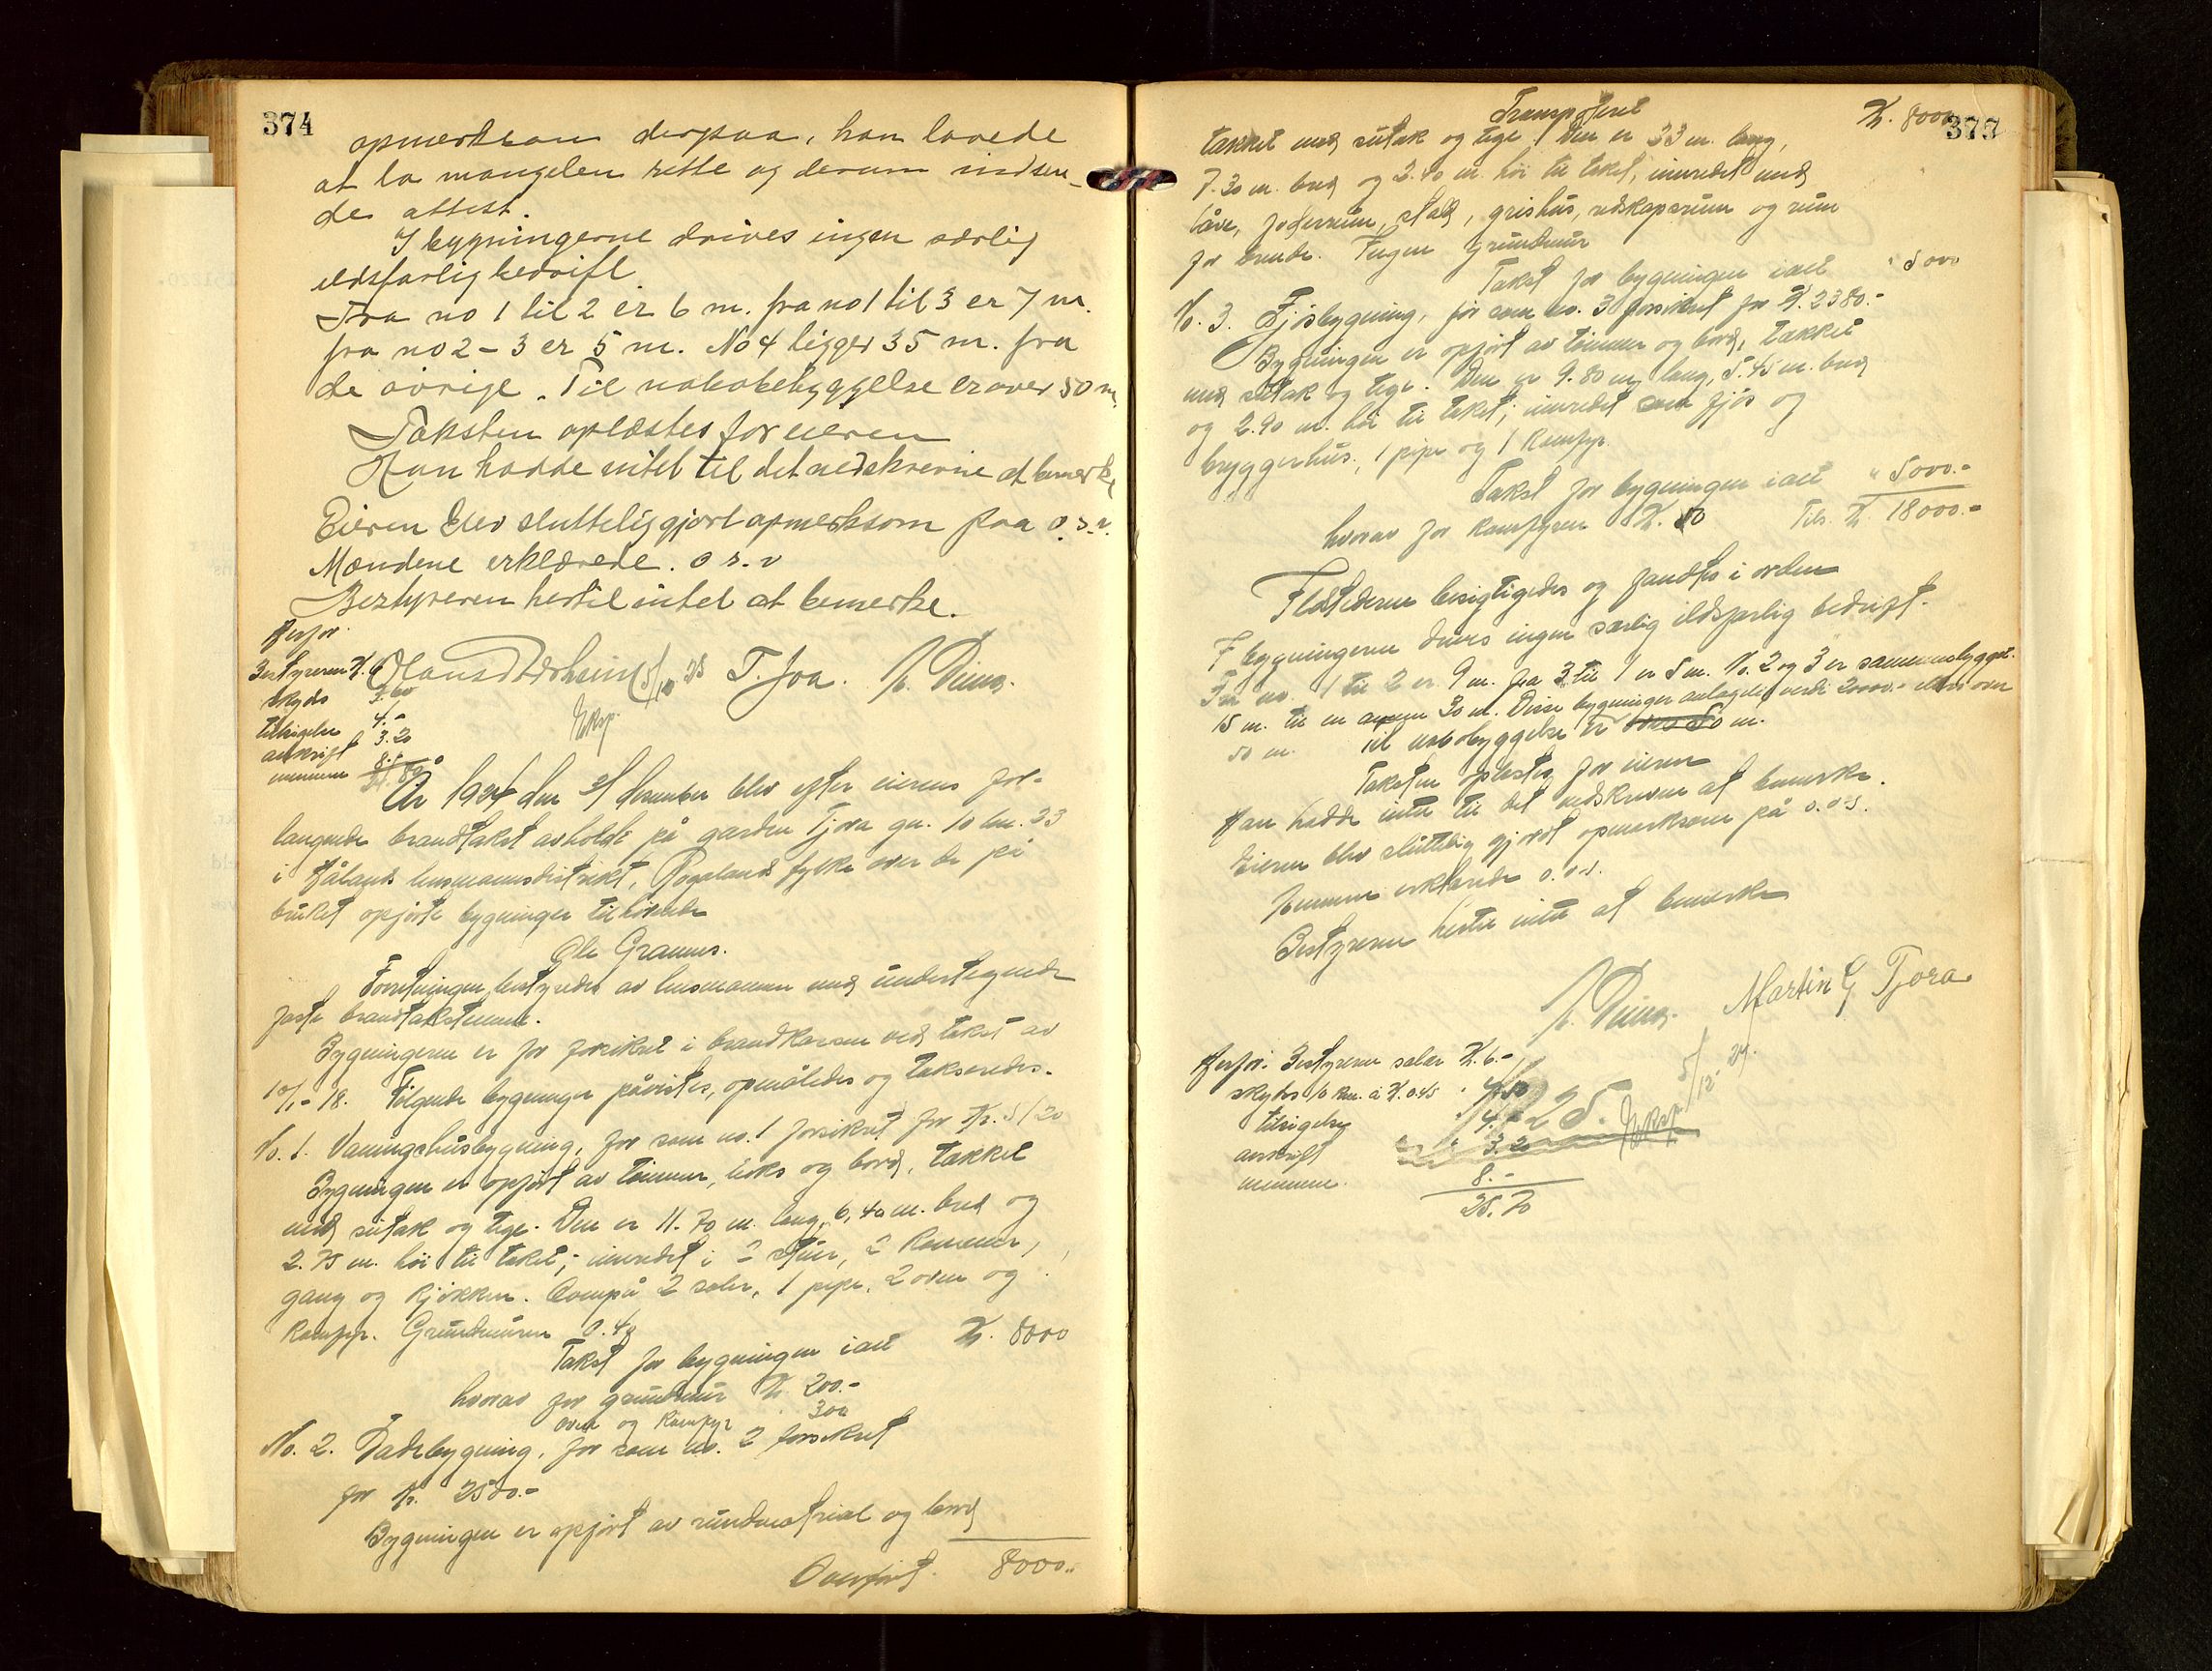 374
opmerksom derpaa, han lovede
at la mangelen rette og derom indsen-
de attest.
I bygningerne drives ingen særlig
ildsfarlig bedrift.
Fra no 1 til 2 er 6 m. fra no 1 til 3 er 7 m.
fra no 2 - 3 er 5 m. No 4 ligger 35 m. fra
de øvrige. Til nabobebyggelse er over 50 m.
Taksten oplæstes for eieren
Han hadde intet til det nedskrevne at bemerke
Eieren blev sluttelig gjort opmerksom paa o.s.v.
Mændene erklærede. o s. v
Bestyreren hertil intet at bemerke.
Herfor
Bestyreren K. 6
skyds
tilsigelse 4.-
avskrift 3.20
mennene 8.-
T. Joa.
Eksp.
År 1924 den 5/ desember blev efter eierens for-
langende brandtakst avholdt på gården Tjora gn. 10 bn. 23
i Håland lensmannsdistrikt, Rogaland fylke over de på
bruket opførte bygninger tilhørende
Ole Grannes.
Forretningen bestyredes av lensmannen med undertegnede
faste brandtakstmenn.
Bygningerne er før forsikret i brandkassen ved takst av
10/1-18. Følgende bygninger påvistes, opmåledes og takseredes.
No. 1. Vaaningshusbygning, før som no. 1 forsikret for Kr. 5120
Bygningen er opført av tømmer, reis og bord, takket
med sutak og tegl. Den er 11.70 m. lang, 6,40 m. bred og
2.75 m. høi til taket; innredet i 2 stuer, 2 kammer,
gang og kjøkken. Ovenpå 2 saler, 1 pipe, 2 ovner og
komfyr. Grundmuren 0.40
Takst for bygningen ialt K. 8000
hvorav for grundmur K. 200.-
ovn og komfyr 300
No. 2. Ladebygning, før som no. 2 forsikret
for K. 2500.-
Bygningen er opført av rundmaterial og bord
Overført. 8000..
377
Transporteret K. 8000
takket med sutak og tegl. Den er 33 m. lang,
7.30 m. bred og 2.40 m. høi til taket, innredet med
låve, foderrum, stald, grishus, redskapsrum og rum
for brende. Ingen grundmur
Takst for bygningen ialt " 5000
No. 3. Fjøsbygning, før som no. 3 forsikret for K. 2380.-
Bygningen er opført av tømmer og bord, takket
med sutak og tegl. Den er 9.80 m. lang, 5.45 m. bred
og 2.90 m. høi til taket; innredet som fjøs og
bryggerhus, 1 pipe og 1 komfyr.
Takst for bygningen ialt " 5000.-
hvorav for komfyren K. 50 Tils. K. 18000.-
Ildstederne besigtigedes og fandtes i orden
I bygningerne drives ingen særlig ildsfarlig bedrift.
Fra no. 1 til 2 er 9 m. fra 3 til 1 er 5 m. No. 2 og 3 er sammenbygget.
15 m. til en annen 30 m. Disse bygninger antagelig verdi 20000.- ellers over
50 m. Til nabobyggelse er over 50 m.
Taksten oplæstes for eieren
Han hadde intet til det nedskrevne at bemerke.
Eieren blev sluttelig gjort opmerksom på o.s.v.
Mennene erklærede o.s.v.
Bestyreren hertil intet at bemerke
Martin G Tjora
Herfor: Bestyreren salær K. 6.-
skyds 10 km. à K. 0.45 " 4.50
tilsigelse " 4.-
avskrift " 3.20
mennene 8.-
25.70
Eksp. 5/12-24.